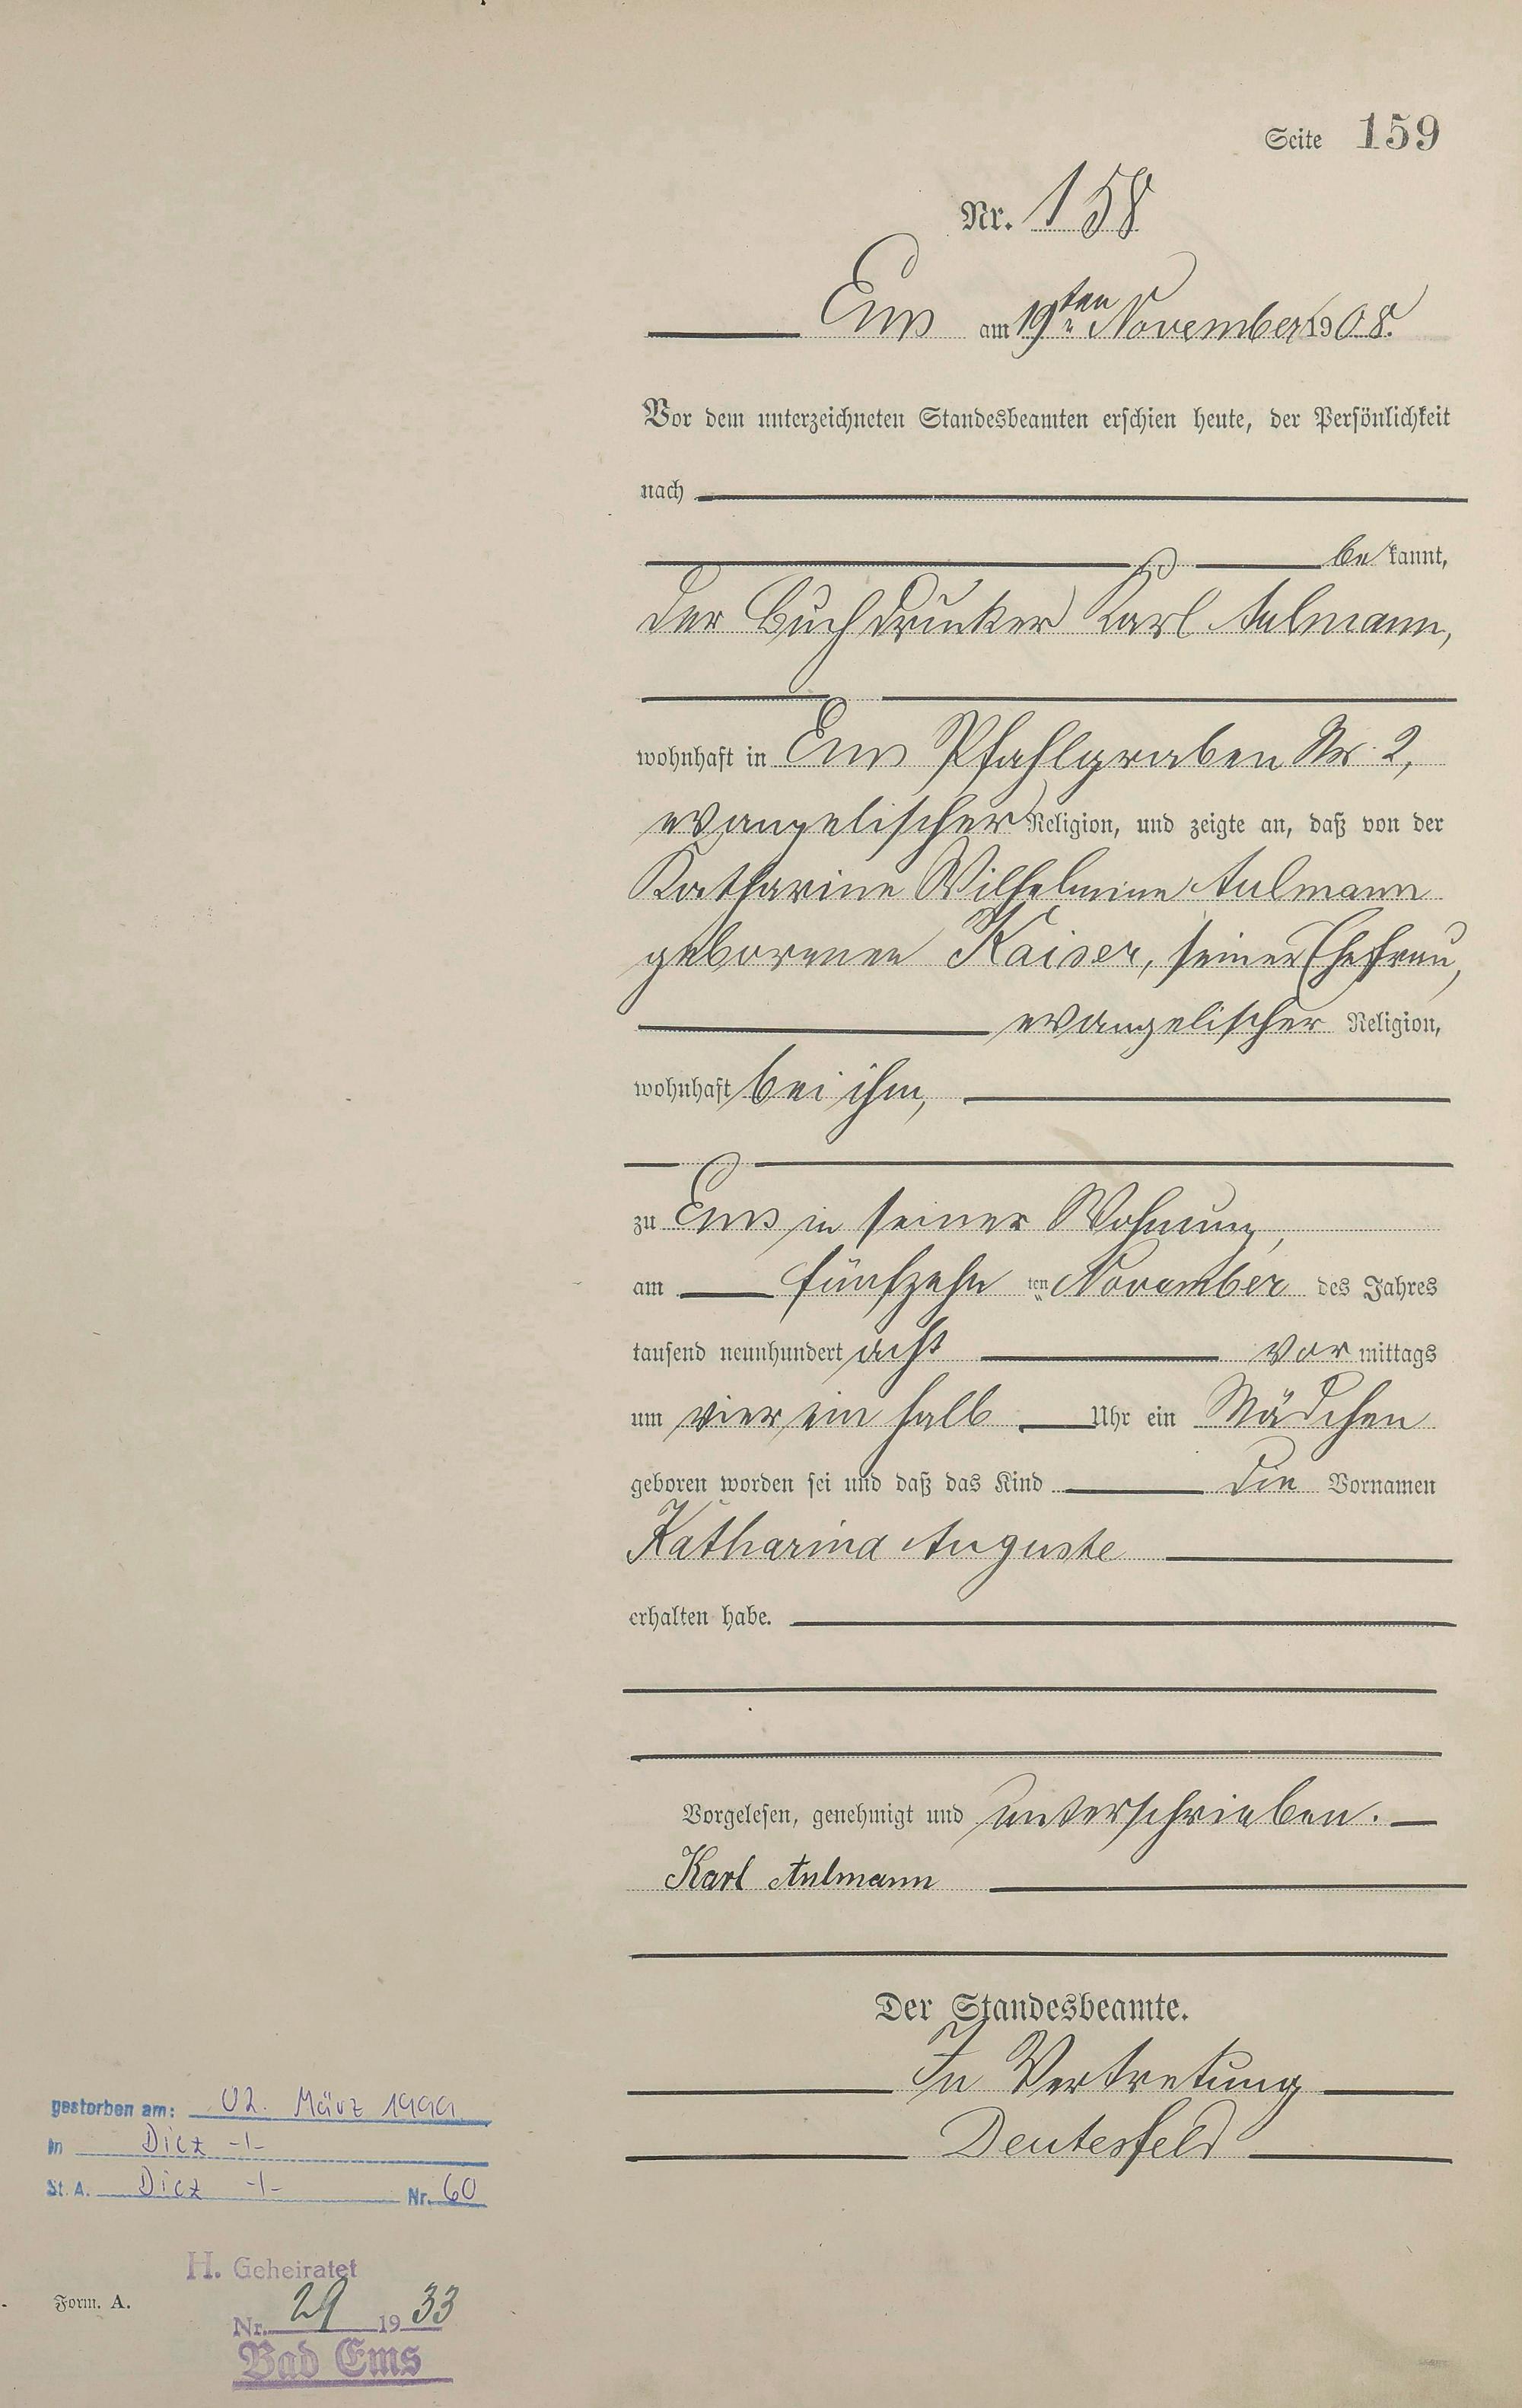 Seite 159
Nr. 158
Ems am 19ten November 1908.
Vor dem unterzeichneten Standesbeamten erschien heute, der Persönlichkeit
nach
bekannt,
der Buchdrucker Karl Aulmann,
wohnhaft in Ems Pfahlgraben Nr. 2,
evangelischer Religion, und zeigte an, daß von der
Katharine Wilhelmine Aulmann
geborenen Kaiser, seiner Ehefrau,
evangelischer Religion,
wohnhaft bei ihm,
zu Ems in seiner Wohnung,
am fünfzehnten November des Jahres
tausend neunhundert acht vormittags
um vier ein halb Uhr ein Mädchen
geboren worden sei und daß das Kind die Vornamen
Katharina Auguste
erhalten habe.
Vorgelesen, genehmigt und unterschrieben.
Karl Aulmann
Der Standesbeamte.
In Vertretung
Deutesfeld
gestorben am: 02. März 1999
in Diez -1-
St. A. Diez -1- Nr. 60
H. Geheiratet
Nr. 29 1933
Bad Ems
Form. A.